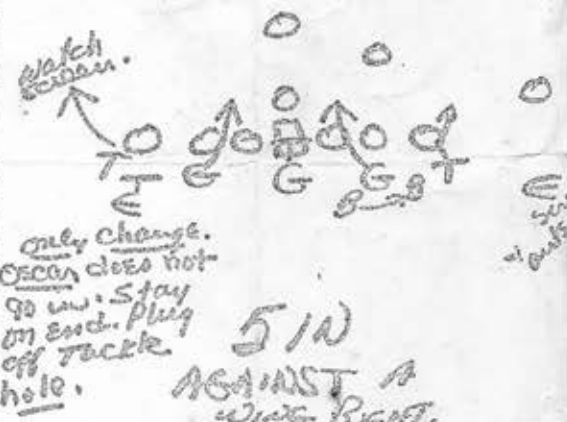 Watch
screen.
T
T
E
G
G
G
B
B
T
E
outs
only change.
Oscar does not
go in. Stay
on End. Plug
off Tackle
hole.
5 IN
AGAINST A
WING RIGHT.